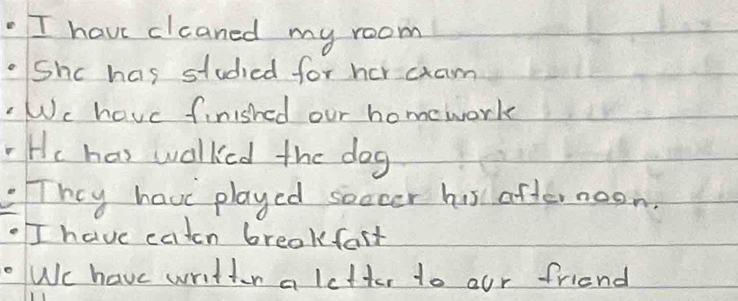 • I have cleaned my room
• She has studied for her exam
• We have finished our homework
• He has walked the dog
• They have played soccer his afternoon.
• I have eaten breakfast
• We have written a letter to our friend